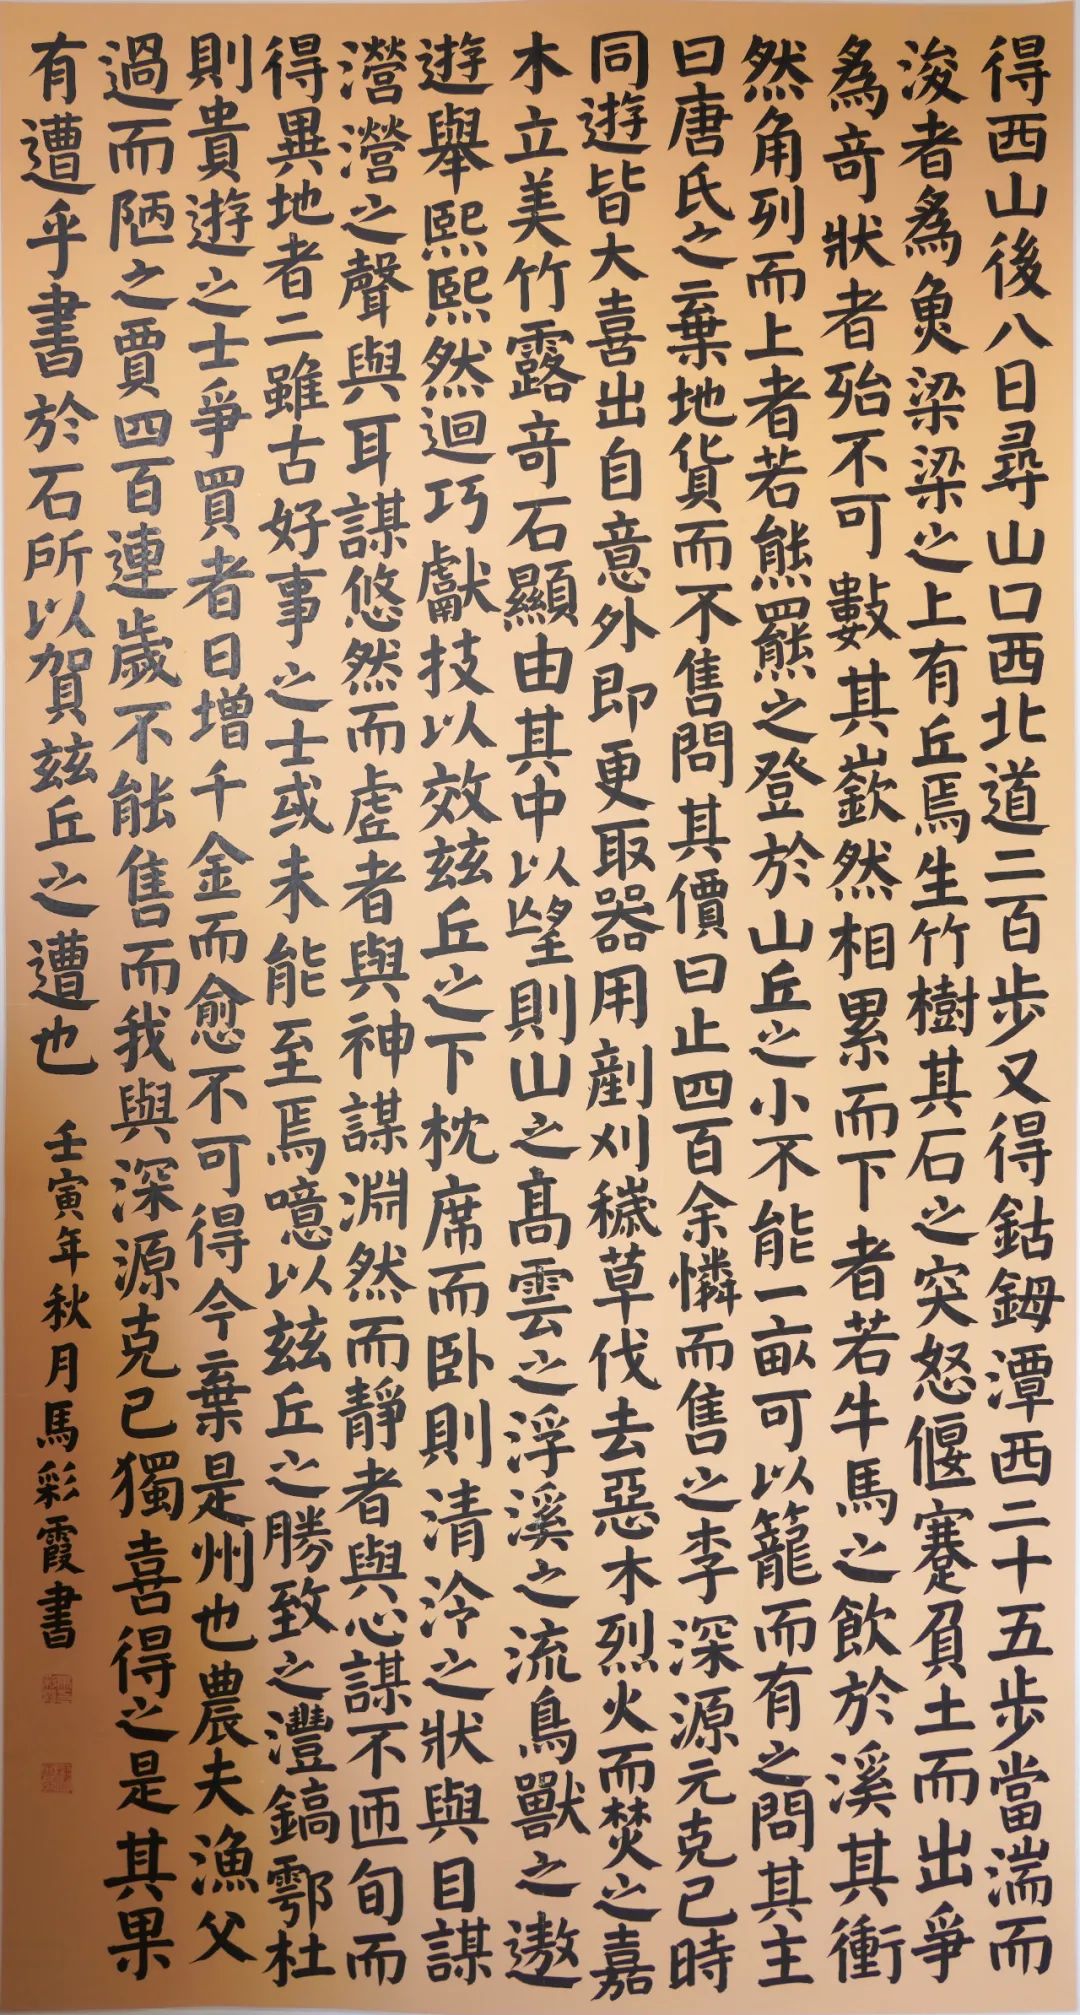 得西山後八日尋山口西北道二百步又得鈷鉧潭西二十五步當湍而
浚者為魚梁梁之上有丘焉生竹樹其石之突怒偃蹇負土而出爭
為奇狀者殆不可數其嶔然相累而下者若牛馬之飲於溪其衝
然角列而上者若熊羆之登於山丘之小不能一畝可以籠而有之問其主
曰唐氏之棄地貨而不售問其價曰止四百余憐而售之李深源元克已時
同遊皆大喜出自意外即更取器用剷刈穢草伐去惡木烈火而焚之嘉
木立美竹露奇石顯由其中以望則山之高雲之浮溪之流鳥獸之遨
遊舉熙熙然迴巧獻技以效茲丘之下枕席而臥則清泠之狀與目謀
瀯瀯之聲與耳謀悠然而虛者與神謀淵然而靜者與心謀不匝旬而
得異地者二雖古好事之士或未能至焉噫以茲丘之勝致之灃鎬鄠杜
則貴遊之士爭買者日增千金而愈不可得今棄是州也農夫漁父
過而陋之賈四百連歲不能售而我與深源克已獨喜得之是其果
有遭乎書於石所以賀茲丘之遭也 壬寅年秋月馬彩霞書